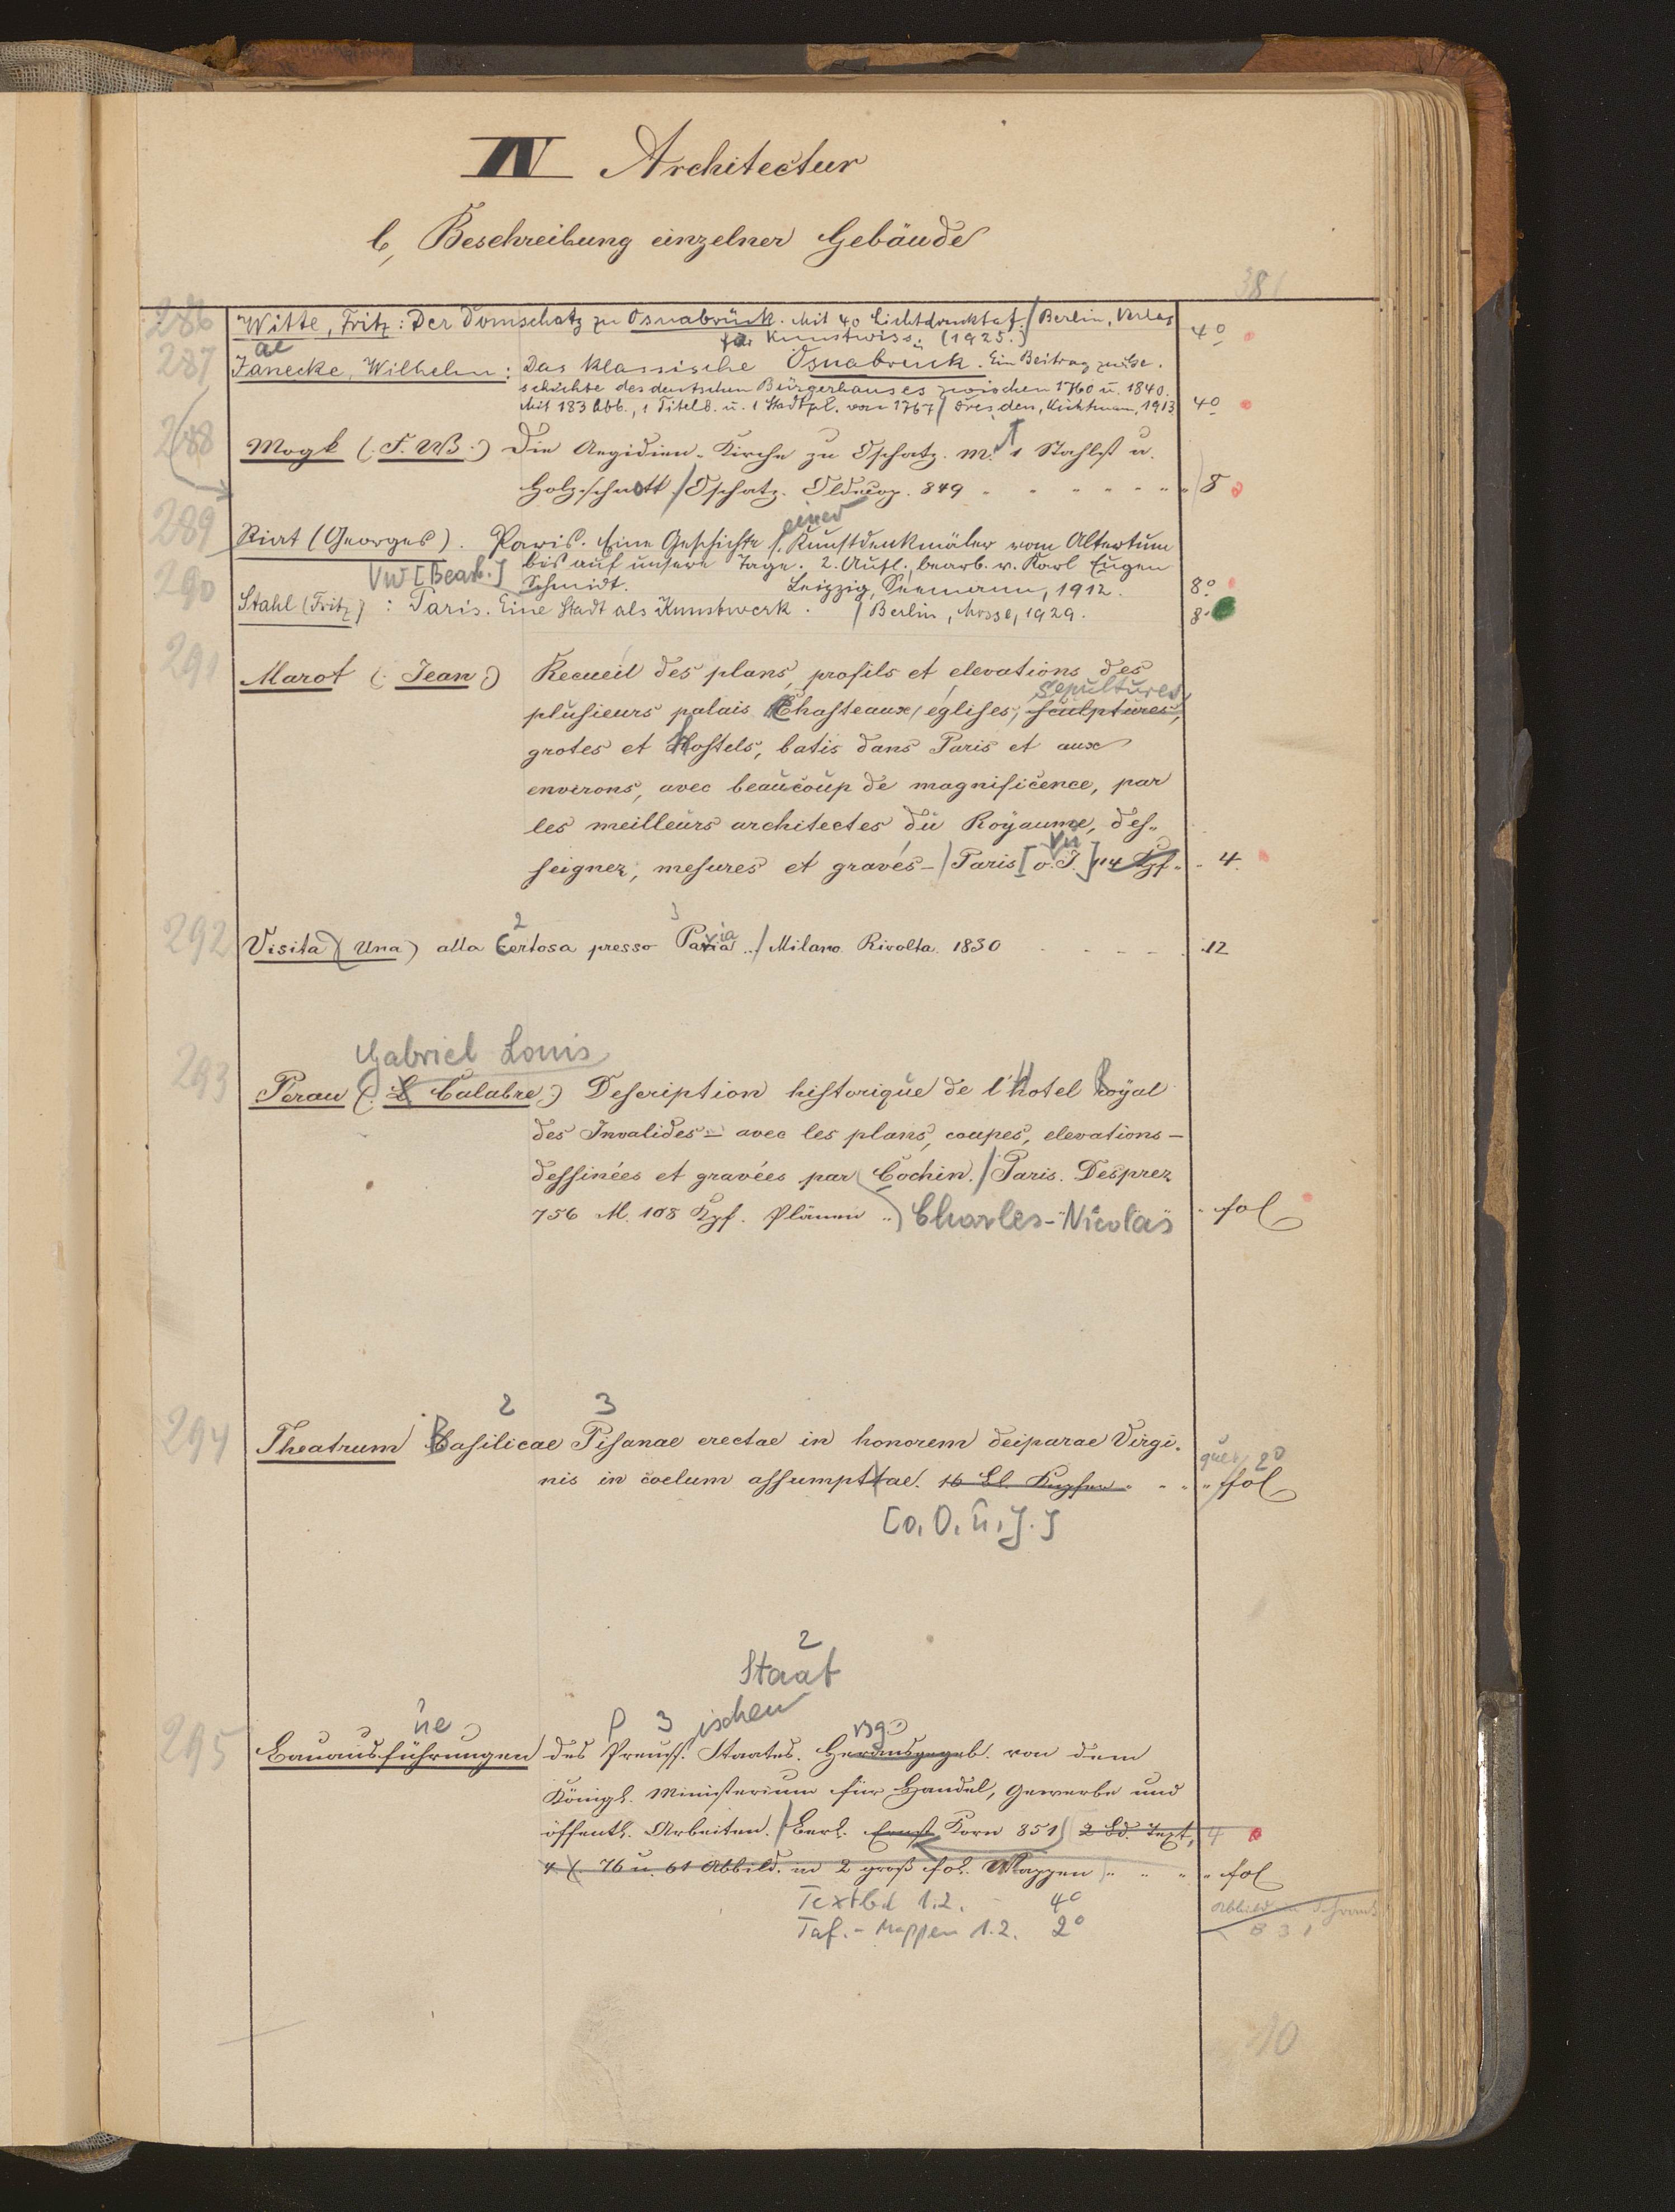 IV Architectur
b, Beschreibung einzelner Gebäude
381
286 Witte, Fritz: Der Domschatz zu Osnabrück. Mit 40 Lichtdrucktaf. / Berlin, Verlag 4°
für Kunstwiss. (1925.)
ae
287 Janecke, Wilhelm: Das klassische Osnabrück. Ein Beitrag zur Ge-
schichte des deutschen Bürgerhauses zwischen 1760 u. 1840.
Mit 183 Abb., 1 Titelb. u. 1 Stadtpl. von 1767 / Dresden, Kühtmann, 1913 4°
288 Mogk (: F. W. :) Die Aegidien-Kirche zu Oschatz. M. 1 Stahlst u.
Holzschnitt / Oschatz. Oldecop. 849 8
289 Riat (Georges). Paris. Eine Geschichte seiner Kunstdenkmäler vom Altertum
bis auf unsere Tage. 2. Aufl., bearb. v. Karl Eugen
VW [Bearb.] Schmidt. Leipzig, Seemann, 1912. 8°
290 Stahl (Fritz): Paris. Eine Stadt als Kunstwerk. / Berlin, Mosse, 1929. 8°
291 Marot (: Jean :) Recueil des plans, profils et elevations des
sepultures
plusieurs palais Chasteaux, églises, sculptures,
grotes et Hostels, batis dans Paris et aux
environs, avec beaucoup de magnificence, par
les meilleurs architectes du Royaume, des-
seignez, mesures et gravés - / Paris [o. J.] 114 Kpf. 4.
292 Visita (Una) alla Certosa presso Pavia / Milano. Rivolta. 1830 12
Gabriel Louis
293 Perau (: L Calabre :) Description historique de l'Hotel Royal
des Invalides - avec les plans, coupes, elevations -
dessinées et gravées par Cochin. / Paris. Desprez
756 M. 108 Kpf. Plänen Charles-Nicolas fol
2 3
294 Theatrum Basilicae Pisanae erectae in honorem deiparae Virgi-
quer 2°
nis in coelum assumptae. 16 Bl. Kupfer fol
[o. O. u. J.]
2
Staat
üe P 3 ischen rsg.
295 Bauausführungen des Preuß. Staates. Herausgegeb. von dem
Königl. Ministerium für Handel, Gewerbe und
öffentl. Arbeiten. / Berl. Ernst Korn 851 2 Bd. Text, 4
76 u. 61 Abbild. in 2 groß fol. Mappen fol
Textbd 1.2. - 4°
Taf.-Mappen 1.2. 2°
B 31
10